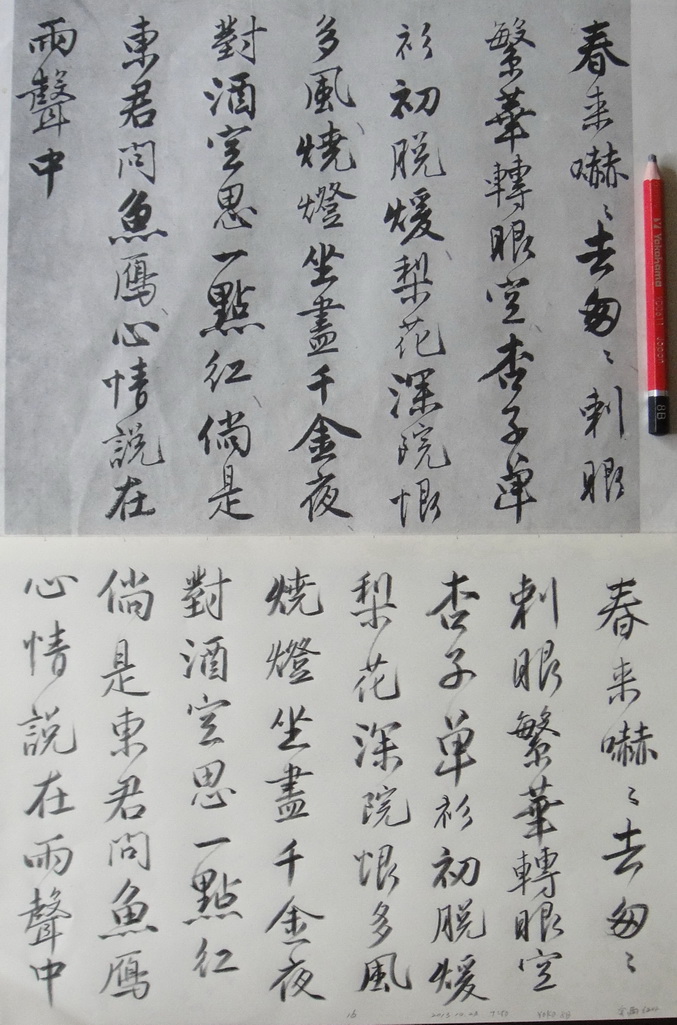 春来嚇〻去匆〻刺眼
繁華轉眼空杏子單
衫初脱煖梨花深院恨
多風燒燈坐盡千金夜
對酒空思一點紅倘是
東君問魚鴈心情説在
雨聲中
Yokohama
8B
春来嚇〻去匆〻
刺眼繁華轉眼空
杏子單衫初脱煖
梨花深院恨多風
燒燈坐盡千金夜
對酒空思一點紅
倘是東君問魚鴈
心情説在雨聲中
16